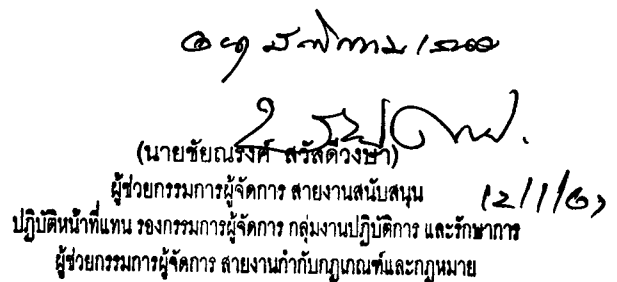 อนุมัติตามเสนอ
(นายชัยณรงค์ สวัสดีวงษา)
ผู้ช่วยกรรมการผู้จัดการ สายงานสนับสนุน
12/1/67
ปฏิบัติหน้าที่แทน รองกรรมการผู้จัดการ กลุ่มงานปฏิบัติการ และรักษาการ
ผู้ช่วยกรรมการผู้จัดการ สายงานกำกับกฎเกณฑ์และกฎหมาย